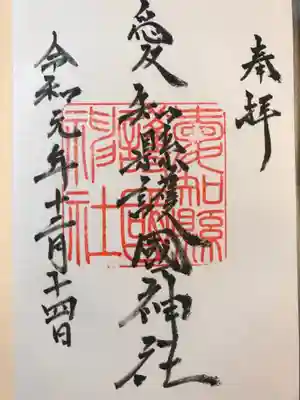 奉拝
愛知縣護國神社
愛知縣護國神社
令和元年十二月十四日